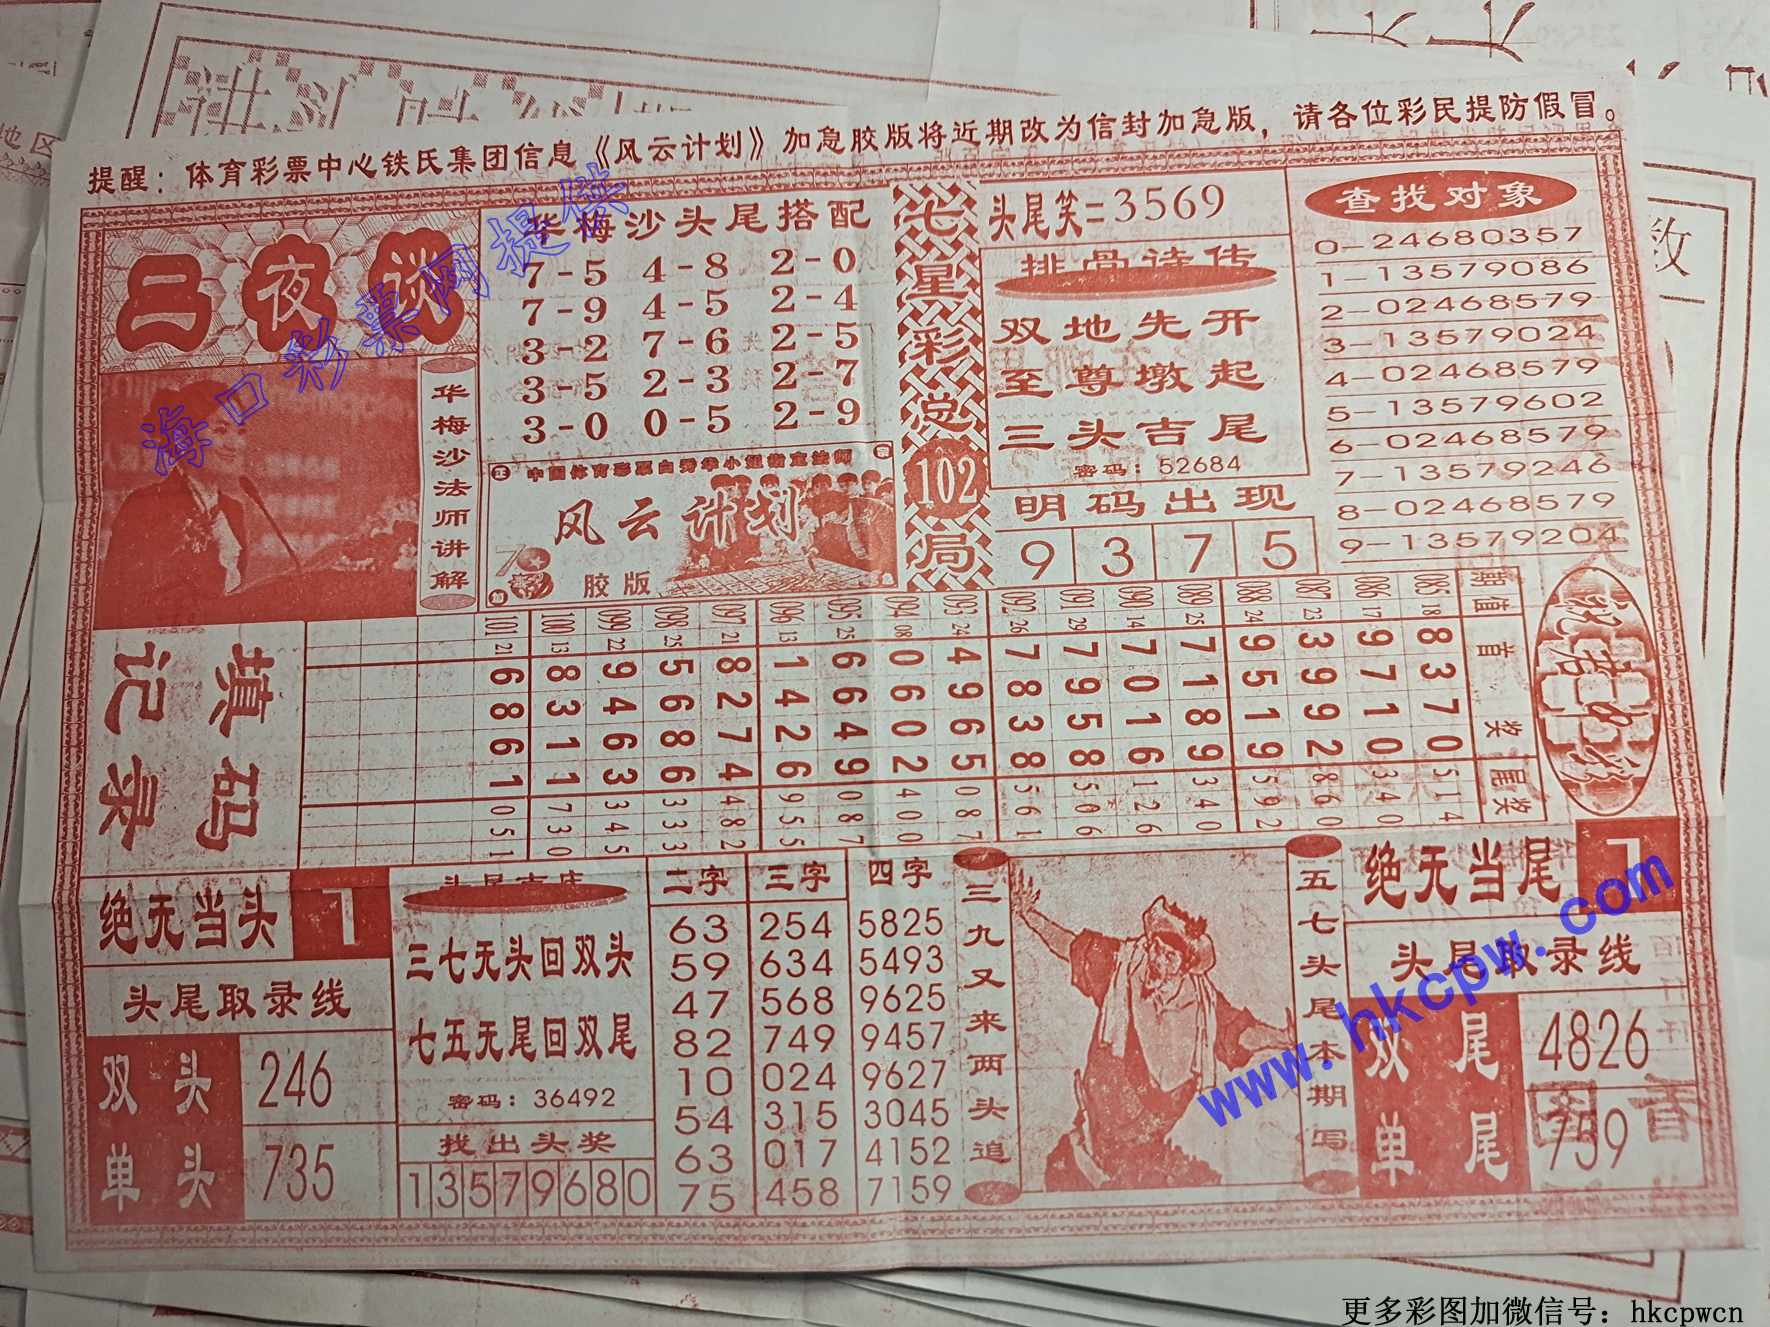 提醒：体育彩票中心铁氏集团信息《风云计划》加急胶版将近期改为信封加急版，请各位彩民提防假冒。
二夜谈
华梅沙法师讲解
华梅沙头尾搭配
7-5 4-8 2-0
7-9 4-5 2-4
3-2 7-6 2-5
3-5 2-3 2-7
3-0 0-5 2-9
风云计划
胶版
七星彩总102局
头尾笑=3569
排骨诗传
双地先开
至尊墩起
三头吉尾
密码：52684
明码出现
9 3 7 5
查找对象
0-24680357
1-13579086
2-02468579
3-13579024
4-02468579
5-13579602
6-02468579
7-13579246
8-02468579
9-13579204
填码记录
期值 首奖 尾奖
085 18 8370 514
086 17 9710 340
087 23 3992 860
088 24 9519 592
089 25 7189 340
090 14 7016 126
091 29 7958 506
092 26 7838 561
093 24 4965 087
094 08 0602 400
095 25 6649 087
096 13 1426 955
097 21 8274 482
098 25 5686 333
099 22 9463 345
100 13 8311 730
101 21 6861 051
绝无当头 1
头尾取录线
双头 246
单头 735
三七无头回双头
七五无尾回双尾
密码：36492
找出头奖
13579680
二字 三字 四字
63 254 5825
59 634 5493
47 568 9625
82 749 9457
10 024 9627
54 315 3045
63 017 4152
75 458 7159
三九又来两头追
五七头尾本期写
绝无当尾 1
头尾取录线
双尾 4826
单尾 759
海口彩票网提供
www.hkcpw.com
更多彩图加微信号：hkcpwcn